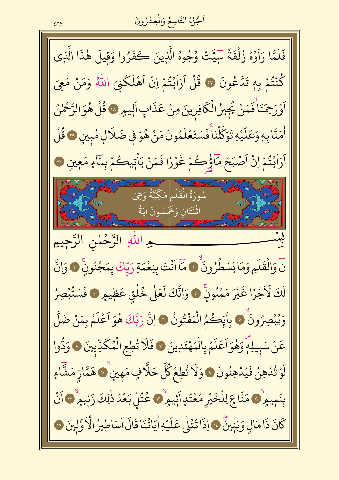 اَلْجُزْءُ التَّاسِعُ وَالْعِشْرُونَ
فَلَمَّا رَاَوْهُ زُلْفَةً س۪ٓيـَٔتْ وُجُوهُ الَّذ۪ينَ كَفَرُوا وَق۪يلَ هٰذَا الَّذ۪ي
كُنْتُمْ بِه۪ تَدَّعُونَ ۞ قُلْ اَرَاَيْتُمْ اِنْ اَهْلَكَنِيَ اللّٰهُ وَمَنْ مَعِيَ
اَوْ رَحِمَنَاۙ فَمَنْ يُج۪يرُ الْكَافِر۪ينَ مِنْ عَذَابٍ اَل۪يمٍ ۞ قُلْ هُوَ الرَّحْمٰنُ
اٰمَنَّا بِه۪ وَعَلَيْهِ تَوَكَّلْنَاۚ فَسَتَعْلَمُونَ مَنْ هُوَ ف۪ي ضَلَالٍ مُب۪ينٍ ۞ قُلْ
اَرَاَيْتُمْ اِنْ اَصْبَحَ مَٓاؤُ۬كُمْ غَوْرًا فَمَنْ يَأْت۪يكُمْ بِمَٓاءٍ مَع۪ينٍ ۞
سُورَةُ الْقَلَمِ مَكِّيَّةٌ وَهِيَ
اثْنَتَانِ وَخَمْسُونَ اٰيَةً
بِسْمِ اللّٰهِ الرَّحْمٰنِ الرَّح۪يمِ
نٓ وَالْقَلَمِ وَمَا يَسْطُرُونَۙ ۞ مَٓا اَنْتَ بِنِعْمَةِ رَبِّكَ بِمَجْنُونٍۚ ۞ وَاِنَّ
لَكَ لَاَجْرًا غَيْرَ مَمْنُونٍۚ ۞ وَاِنَّكَ لَعَلٰى خُلُقٍ عَظ۪يمٍ ۞ فَسَتُبْصِرُ
وَيُبْصِرُونَۙ ۞ بِاَيِّكُمُ الْمَفْتُونُ ۞ اِنَّ رَبَّكَ هُوَ اَعْلَمُ بِمَنْ ضَلَّ
عَنْ سَب۪يلِه۪ۖ وَهُوَ اَعْلَمُ بِالْمُهْتَد۪ينَ ۞ فَلَا تُطِعِ الْمُكَذِّب۪ينَ ۞ وَدُّوا
لَوْ تُدْهِنُ فَيُدْهِنُونَ ۞ وَلَا تُطِعْ كُلَّ حَلَّافٍ مَه۪ينٍۙ ۞ هَمَّازٍ مَشَّٓاءٍ
بِنَم۪يمٍۙ ۞ مَنَّاعٍ لِلْخَيْرِ مُعْتَدٍ اَث۪يمٍۙ ۞ عُتُلٍّ بَعْدَ ذٰلِكَ زَن۪يمٍۙ ۞ اَنْ
كَانَ ذَا مَالٍ وَبَن۪ينَۜ ۞ اِذَا تُتْلٰى عَلَيْهِ اٰيَاتُنَا قَالَ اَسَاط۪يرُ الْاَوَّل۪ينَ ۞